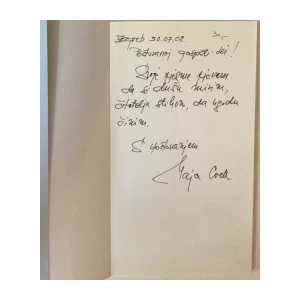 Zagreb 30.07.08.
Poštovanoj gospođi !
Svoje pjesme pjevam
da si dušu mirim,
čitatelja stihom, da
činim.
S poštovanjem
Maja